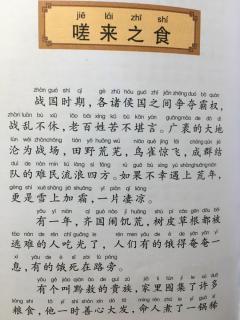 jiē lái zhī shí
嗟来之食
zhàn guó shí qī gè zhū hóu guó zhī jiān zhēng duó bà quán
战国时期，各诸侯国之间争夺霸权，
zhàn luàn bù xiū lǎo bǎi xìng kǔ bù kān yán guǎng mào de dà dì
战乱不休，老百姓苦不堪言。广袤的大地
lún wéi zhàn chǎng tián yě huāng wú wū què jīng fēi chéng qún jié
沦为战场，田野荒芜，乌雀惊飞，成群结
duì de nàn mín liú làng sì fāng rú guǒ bú xìng yù shàng huāng nián
队的难民流浪四方。如果不幸遇上荒年，
gèng shì xuě shàng jiā shuāng yí piàn qī liáng
更是雪上加霜，一片凄凉。
yǒu yì nián qí guó nào jī huāng shù pí cǎo gēn dōu bèi
有一年，齐国闹饥荒，树皮草根都被
táo nàn de rén chī guāng le rén men yǒu de è de yǎn yǎn yì
逃难的人吃光了，人们有的饿得奄奄一
xī yǒu de è sǐ zài lù páng
息，有的饿死在路旁。
yǒu gè jiào qián áo de guì zú jiā lǐ tún jī le xǔ duō
有个叫黔敖的贵族，家里囤积了许多
liáng shi tā yì shí shàn xīn dà fā mìng rén zhǔ le yì guō xī
粮食，他一时善心大发，命人煮了一锅稀